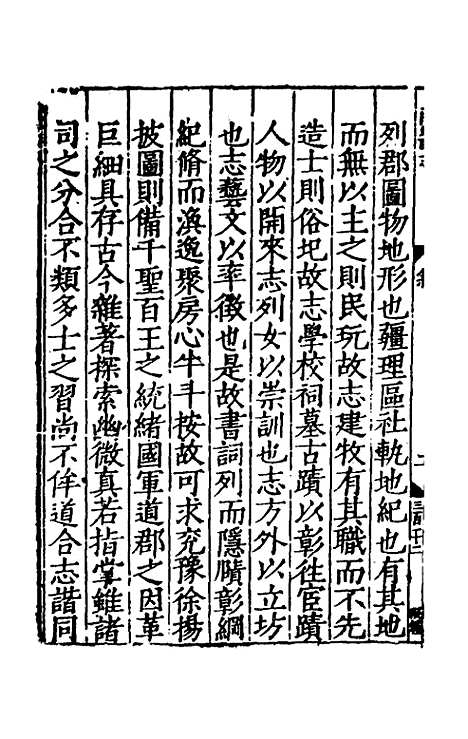 列郡圖物地形也疆理區社軌地紀也有其地
而無以主之則民玩故志建牧有其職而不先
造士則俗圮故志學校祠墓古蹟以彰徃宦蹟
人物以開來志列女以崇訓也志方外以立坊
也志藝文以率徵也是故書詞列而隱賾彰綱
紀脩而渙逸聚房心牛斗按故可求兖豫徐揚
披圖則備千聖百王之統緒國軍道郡之因革
巨細具存古今雜著探索幽微真若指掌雖諸
司之分合不類多士之習尚不侔道合志諧同